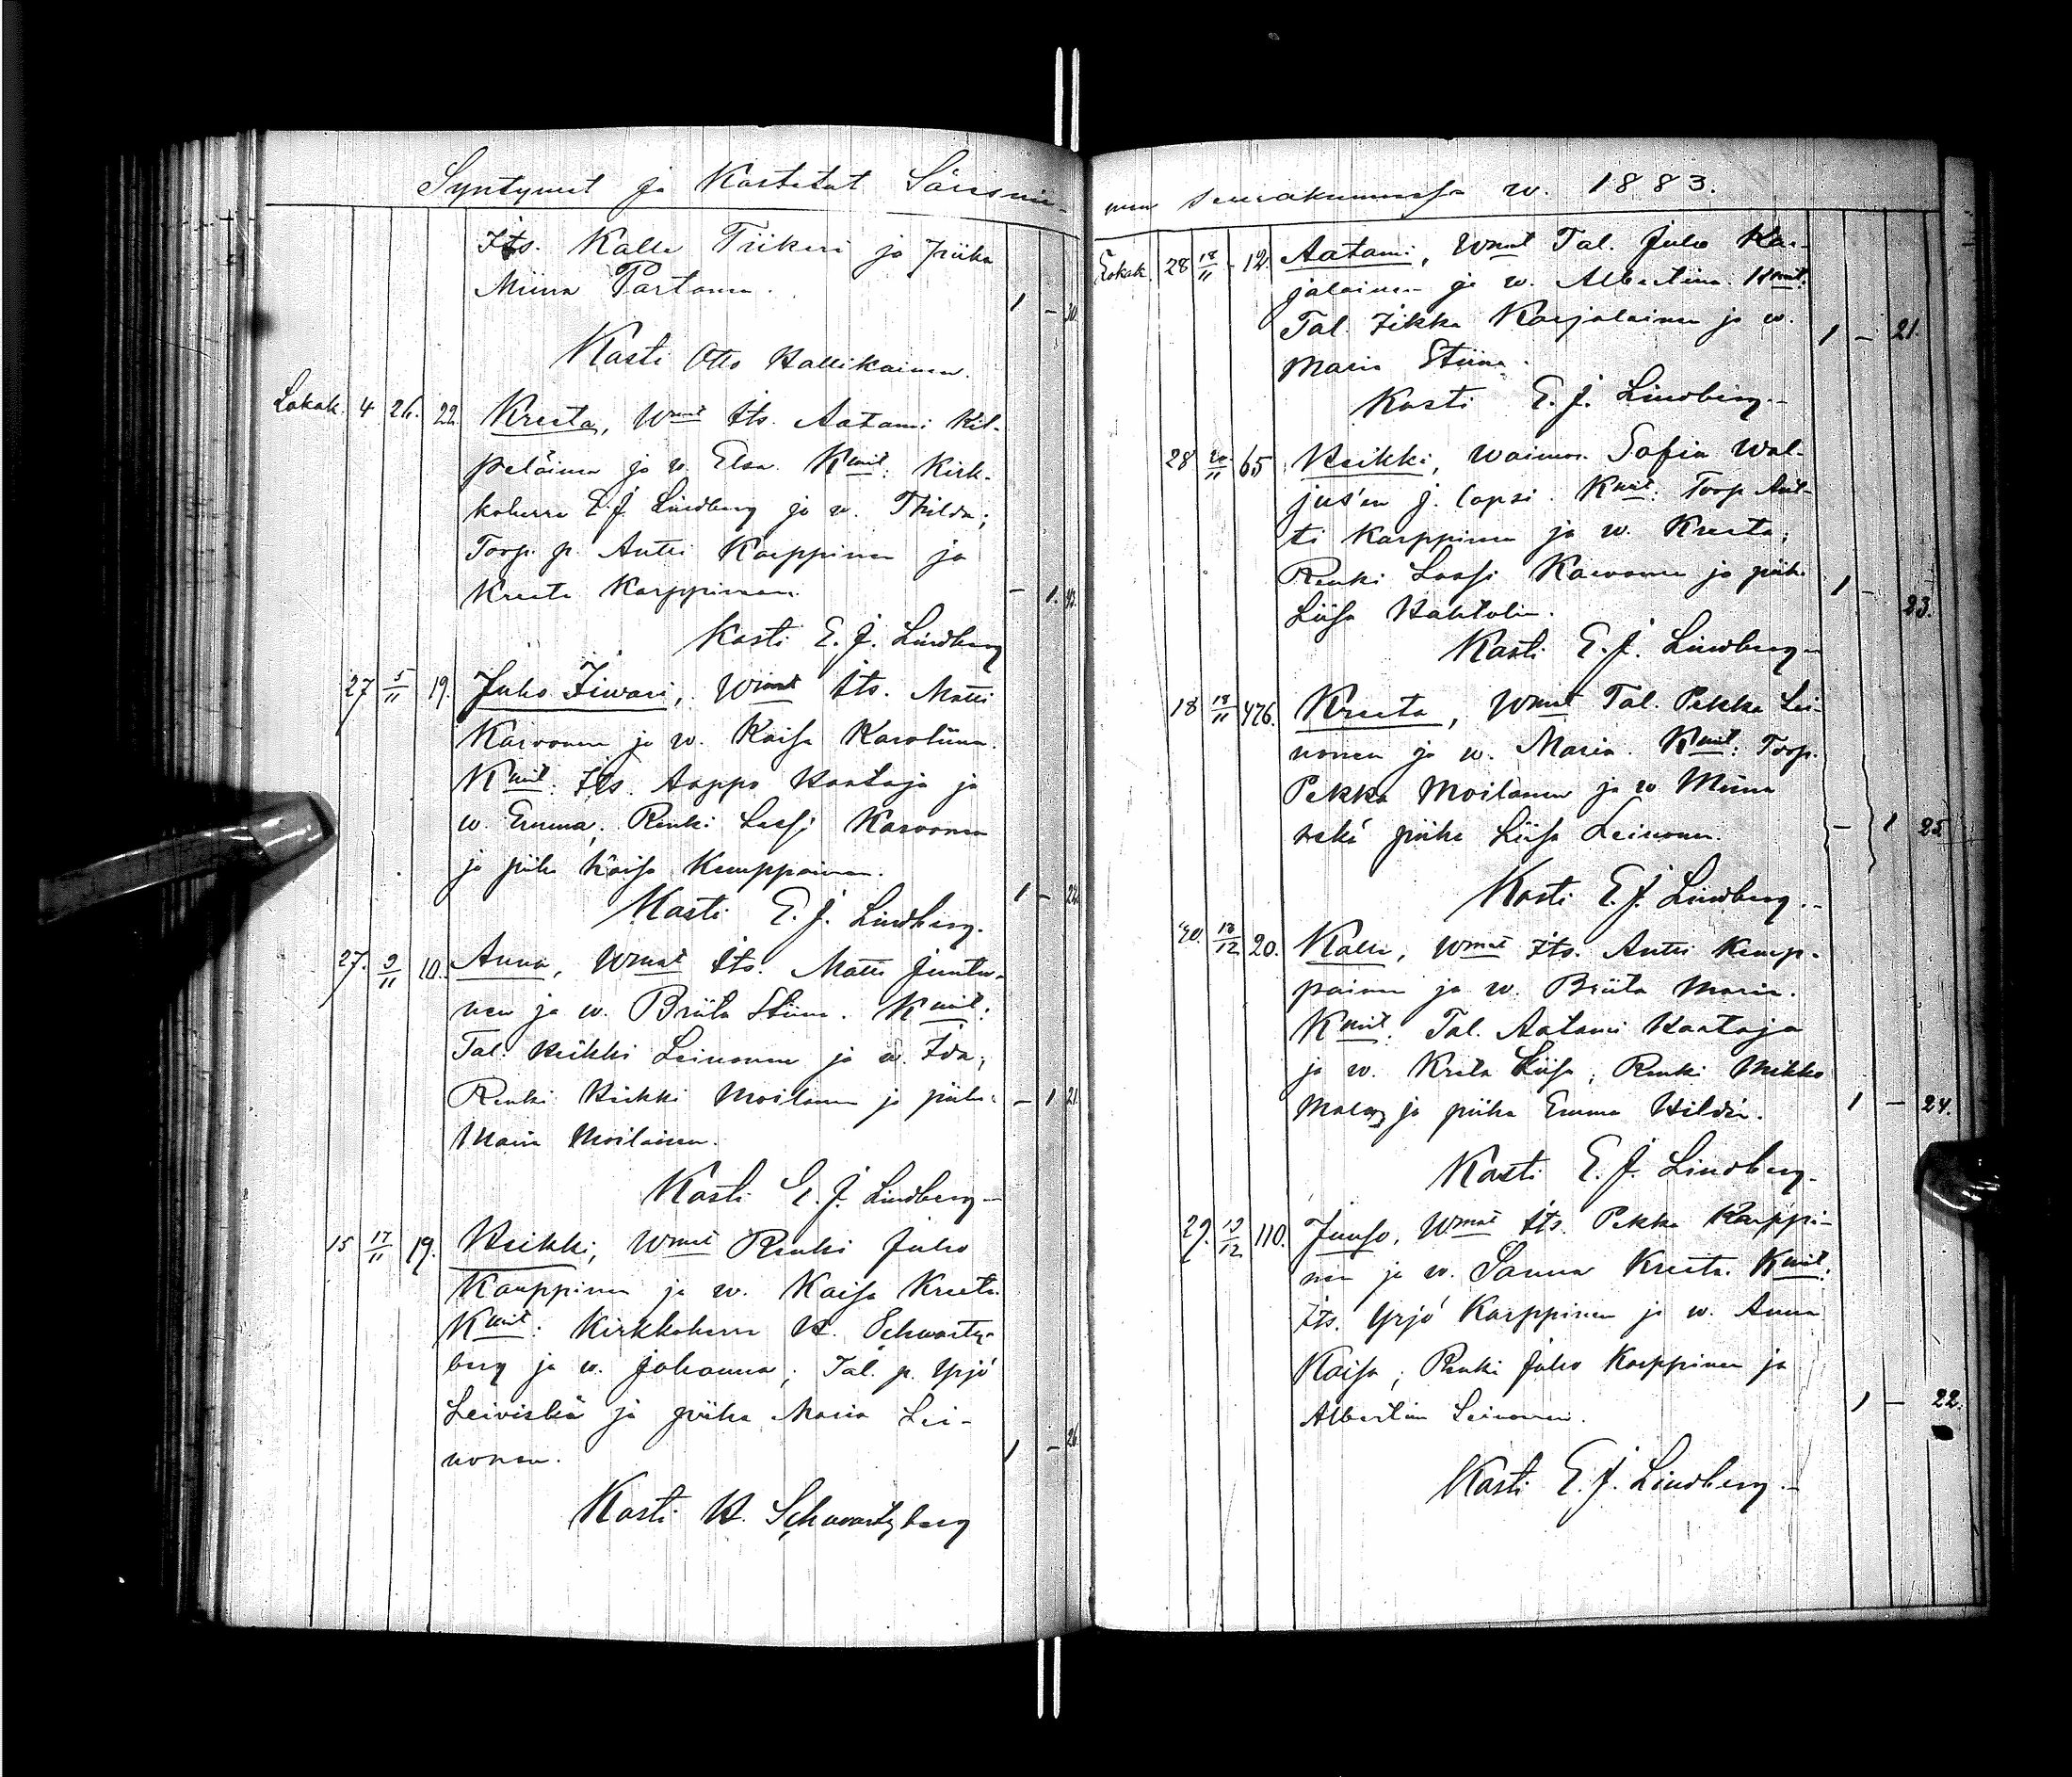 Syntyneet ja Kastetut Säräisnie-
Its. Kalle Tiikeri ja piika
Miina Partanen. 1 —
Kasti Otto Hallikainen.
Lokak. 4 26. 22. Kreeta, Wmat Its. Aatami Kil-
peläinen ja w. Elsa. Kmit: Kirk-
koherra E. J. Lindberg ja w. Thilda;
Torp. p. Antti Karppinen ja
Kreeta Karppinen. — 1.
Kasti E. J. Lindberg
27 5/11 19. Juho Iiwari, Wmat Its. Matti
Karvonen ja w. Kaisa Karoliina.
Kmit: Its. Aappo Haataja ja
w. Emma; Renki Lassi Karvonen
ja piika Kaisa Kemppainen. 1 —
Kasti E. J. Lindberg.
27. 9/11 10. Anna, Wmat Its. Matti Juntu-
nen ja w. Briita Stiina. Kmit:
Tal. Heikki Leinonen ja w. Ida;
Renki Heikki Moilanen ja piika — 1 21.
Maria Moilainen.
Kasti E. J. Lindberg
15 17/11 19. Heikki, Wmat Renki Juho
Karppinen ja w. Kaisa Kreeta.
Kmit: Kirkkoherra H. Schwartz-
berg ja w. Johanna; Tal. p. Yrjö
Leiviskä ja piika Maria Lei-
nonen. 1 — 26.
Kasti H. Schwartzberg
men seurakunnassa w. 1883.
Lokak. 28 18/11 12. Aatami, Wmat Tal. Juho Kar-
jalainen ja w. Albertina. Kmit:
Tal. Iikka Karjalainen ja w. 1 — 21.
Maria Stiina.
Kasti E. J. Lindberg
28 20/11 65 Heikki, Waimon Sofia Wal-
jus'en j. lapsi. Kmit: Torp Ant-
ti Karppinen ja w. Kreeta;
Renki Lassi Karvonen ja piik. 1 — 23.
Liisa Hahtola.
Kasti E. J. Lindberg
18 18/11 476. Kreeta, Wmat Tal. Pekka Lei-
nonen ja w. Maria. Kmit: Torp.
Pekka Moilanen ja w Miina
sekä piika Liisa Leinonen. — 1 25.
Kasti E. J. Lindberg.
30. 12 20. Kalle, Wmat Its. Antti Kemp-
painen ja w. Briita Maria.
Kmit: Tal. Aatami Haataja
ja w. Kreta Liisa; Renki Mikko
ja piika Emma 1 — 24.
Kasti E. J. Lindberg.
29. 12 110. Juuso, Wmat Its. Pekka Karppi-
nen ja w. Sanna Kreeta. Kmit:
Its. Yrjö Karppinen ja w. Anna
Kaisa; Renki Juho Karppinen ja
Albertiina Leinonen. 1 — 22.
Kasti E. J. Lindberg.